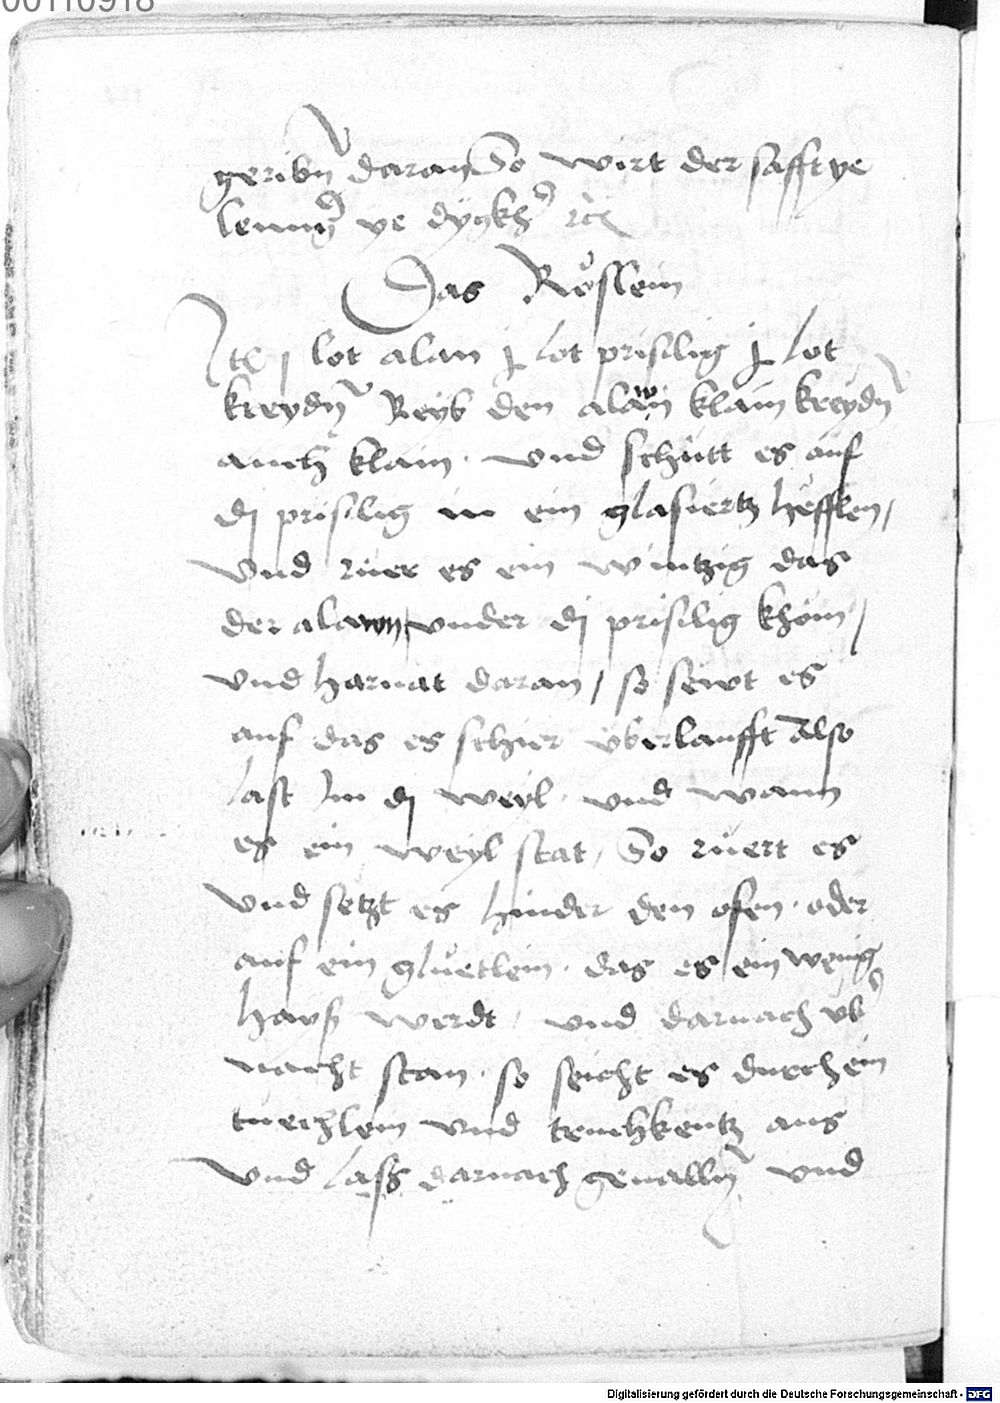 00110918
geribn̄ daran So wirt der safft ye
lenng̕ ye dygkh̕ rc̄
Das Röslein
Itē j lot alan j lot prisilig j lot
kreydn̄ Reyb den alawn klain kreydn̄
auch klain. vnd schutt es auf
dj prisilig in ein glasiertz hefflen,
vnd rüer es ein wintzig das
der alawn vnder dj prisilig khöm,
vnd harnat daran, so sewt es
auf das es schier vberlaufft Also
last Im dj weyl. vnd wann
es ein weyl stat, So rüert es
vnd setzt es hinder den ofen. oder
auf ein glüetlein. das es ein wenig
hays werdt, vnd darnach vb̕
nacht stan. so seicht es durch ein
tuechlein vnd truchkentz aus
vnd lass darnach geualln̄ vnd
Digitalisierung gefördert durch die Deutsche Forschungsgemeinschaft - DFG